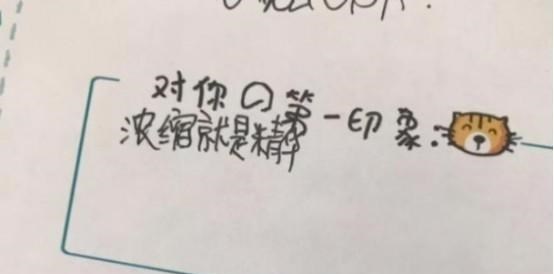 对你の第一印象:
浓缩就是精华